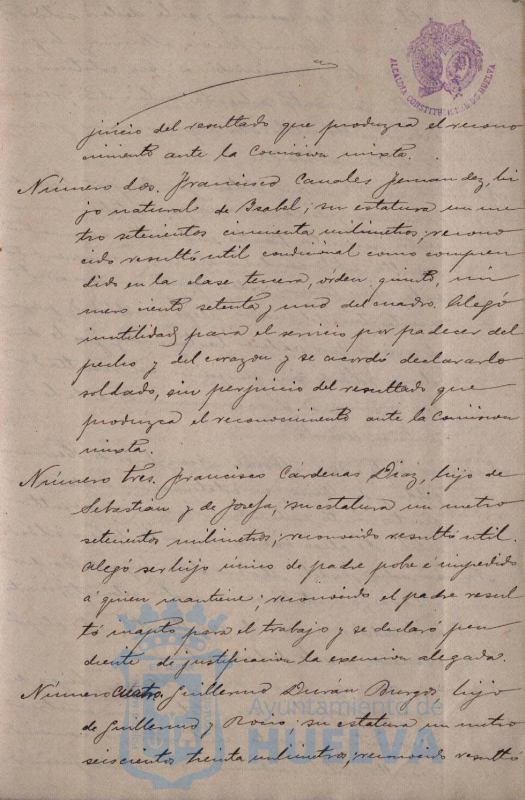 ALCALDIA CONSTITUCIONAL DE HUELVA
juicio del resultado que produzca el recono
cimiento ante la Comision mixta.
Número dos. Francisco Canales Fernandez, hi
jo natural de Isabel; su estatura un me
tro setecientos cincuenta milímetros, recono
cido resultó util condicional como compren
dido en la clase tercera, órden quinto, nú
mero ciento setenta y uno del cuadro. Alegó
inutilidad para el servicio por padecer del
pecho y del corazon y se acordó declararlo
soldado, sin perjuicio del resultado que
produzca el reconocimiento ante la Comision
mixta.
Número tres. Francisco Cárdenas Diaz, hijo de
Sebastian y de Josefa, su estatura un metro
setecientos milímetros; reconocido resultó util.
Alegó ser hijo único de padre pobre é impedido
á quien mantiene; reconocido el padre resul
tó inapto para el trabajo y se declaró pen
diente de justificacion la exencion alegada.
Número cuatro. Guillermo Durán Burgos hijo
de Guillermo y Rocio: su estatura un metro
seiscientos treinta milímetros; reconocido resultó
Ayuntamiento de
HUELVA